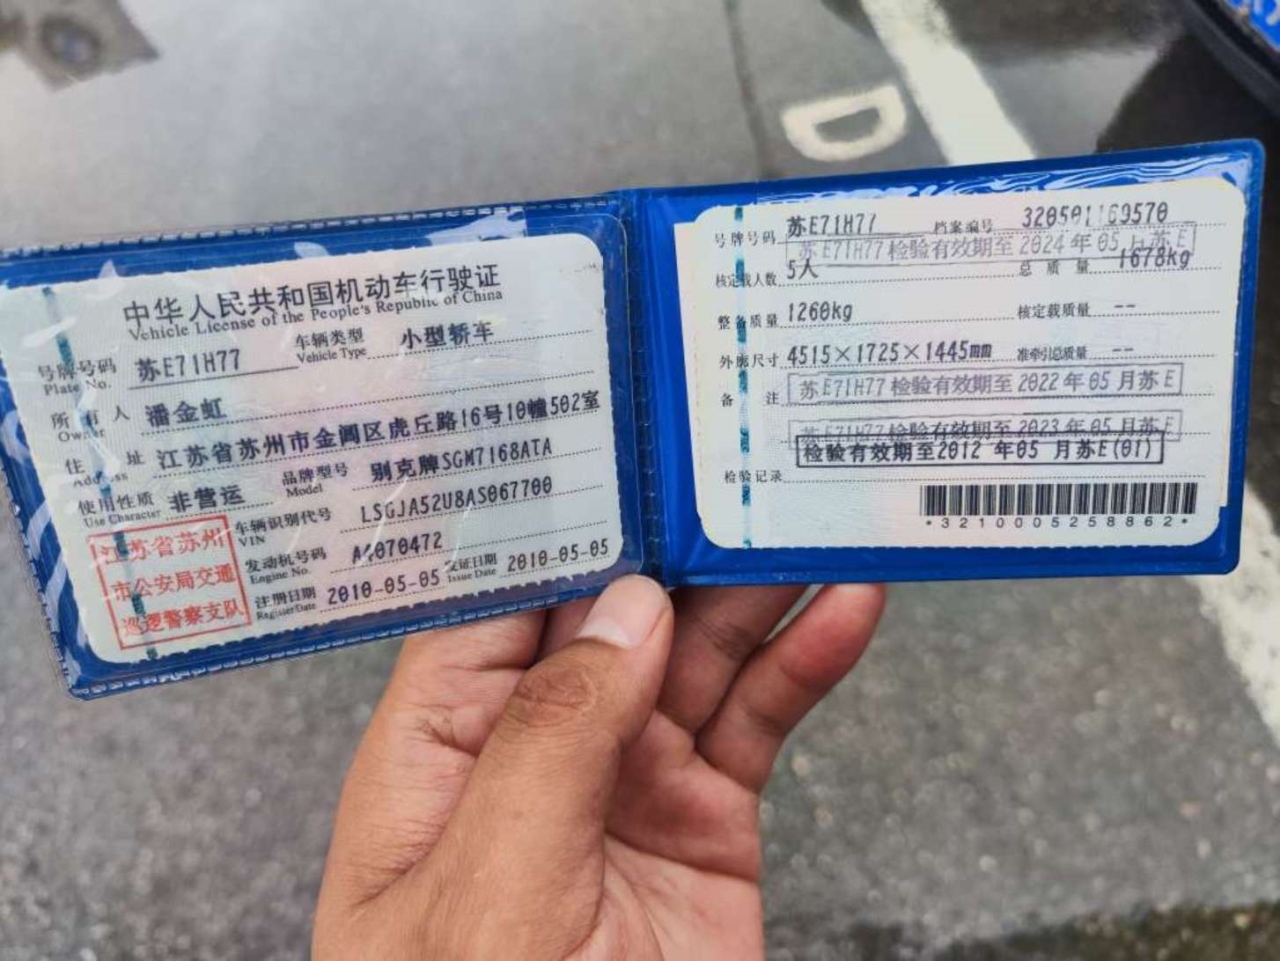 中华人民共和国机动车行驶证
Vehicle License of the People's Republic of China
号牌号码 苏E71H77 车辆类型 小型轿车
Plate No. Vehicle Type
所有人 潘金虹
Owner
住址 江苏省苏州市金阊区虎丘路16号10幢502室
Address
使用性质 非营运 品牌型号 别克牌SGM7168ATA
Use Character Model
江苏省苏州
市公安局交通
巡逻警察支队
车辆识别代号 LSGJA52U8AS067700
VIN
发动机号码 A4070472
Engine No.
注册日期 2010-05-05 发证日期 2010-05-05
Register Date Issue Date
号牌号码 苏E71H77 档案编号 320501169570
苏E71H77检验有效期至2024年05月苏E
核定载人数 5人 总质量 1678kg
整备质量 1260kg 核定载质量 --
外廓尺寸 4515×1725×1445mm 准牵引总质量 --
备注 苏E71H77检验有效期至2022年05月苏E
苏E71H77检验有效期至2023年05月苏E
检验有效期至2012年05月苏E(01)
检验记录
*3210005258862*
D